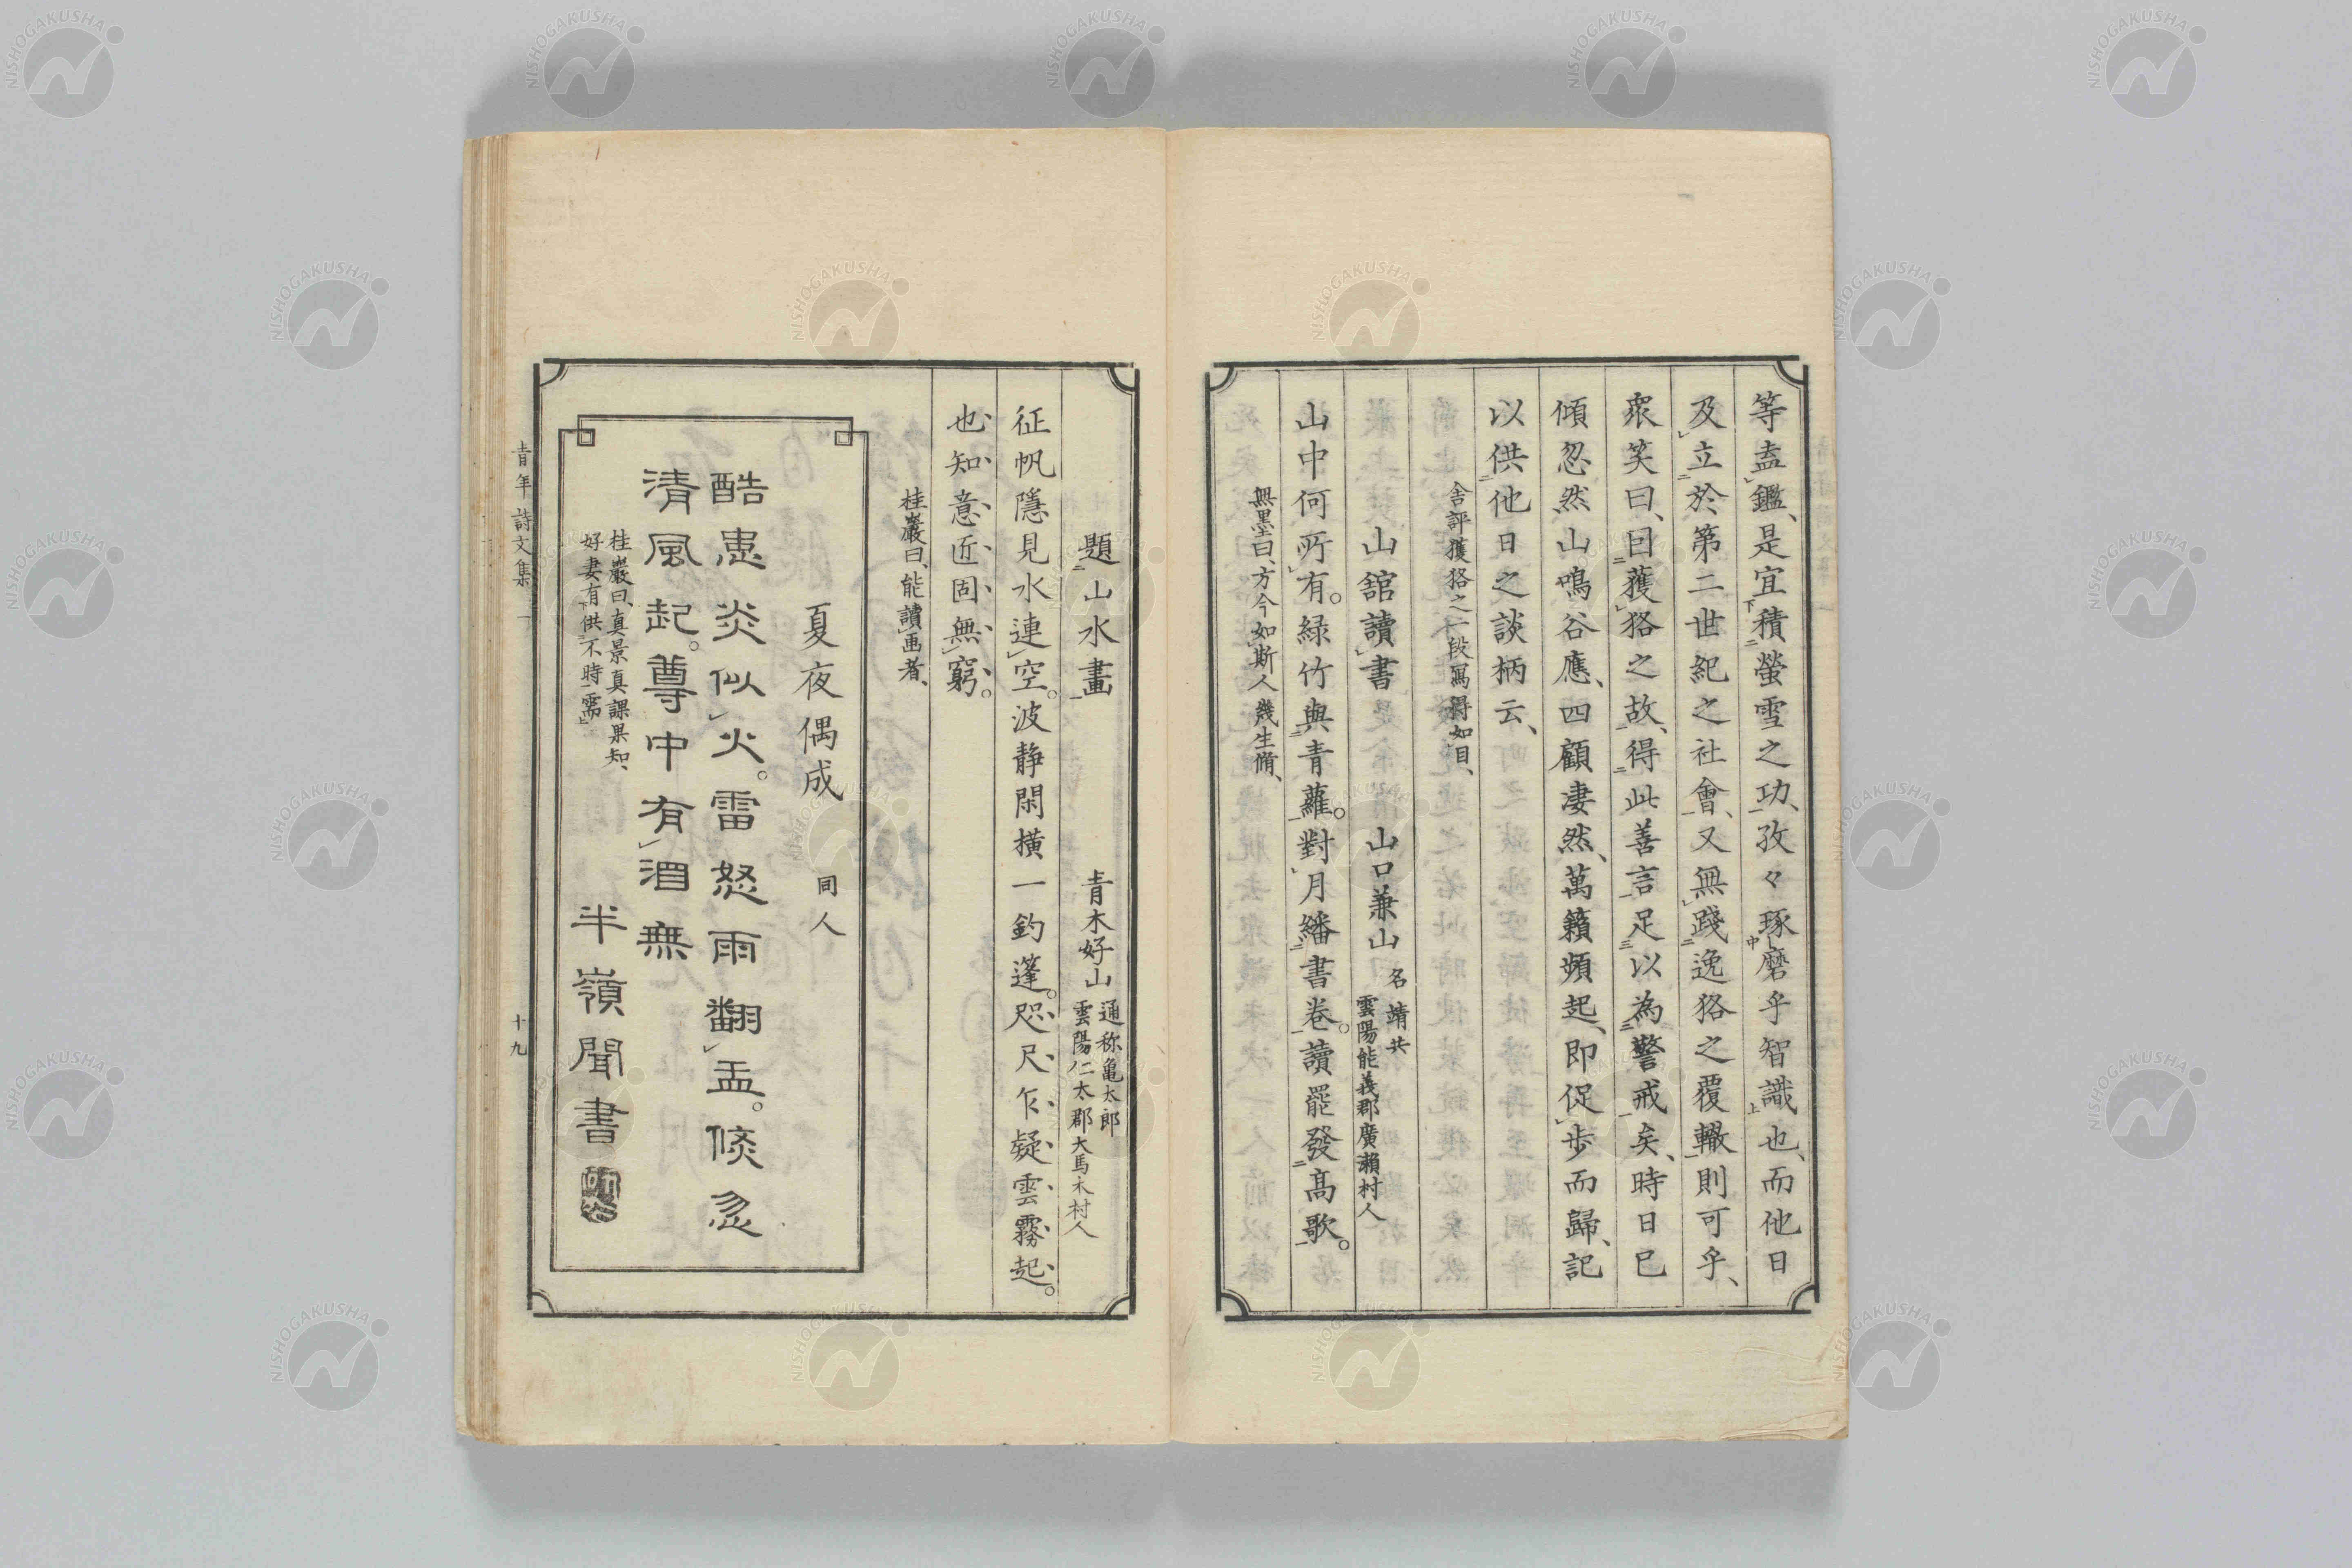 等盍鑑、是宜積螢雪之功、孜々琢磨乎智識也、而他日
及立於第二世紀之社會、又無踐逸狢之覆轍則可乎、
衆笑曰、囙獲狢之故、得此善言足以為警戒矣、時日已
傾忽然山鳴谷應、四顧凄然、萬籟頻起、即促歩而歸、記
以供他日之談柄云、
舎評獲狢之一段寫得如目、
山舘讀書 山口兼山 名靖共
雲陽能義郡廣瀬村人
山中何所有。緑竹與青蘿。對月繙書巻。讀罷發髙歌。
無墨曰、方今如斯人幾生脩、
題山水畫 青木好山 通称亀太郎
雲陽仁太郡大馬木村人
征帆隱見水連空。波静閑横一釣篷。咫尺乍疑雲霧起。
也知意匠固無窮。
桂巖曰、能讀画者、
夏夜偶成 同人
酷患炎似火。雷怒雨翻盂。倐忽
清風起。尊中有酒無
桂巖曰、真景真課果知、
好妻有供不時需
半嶺聞書
青年詩文集 一
十九
NISHOGAKUSHA